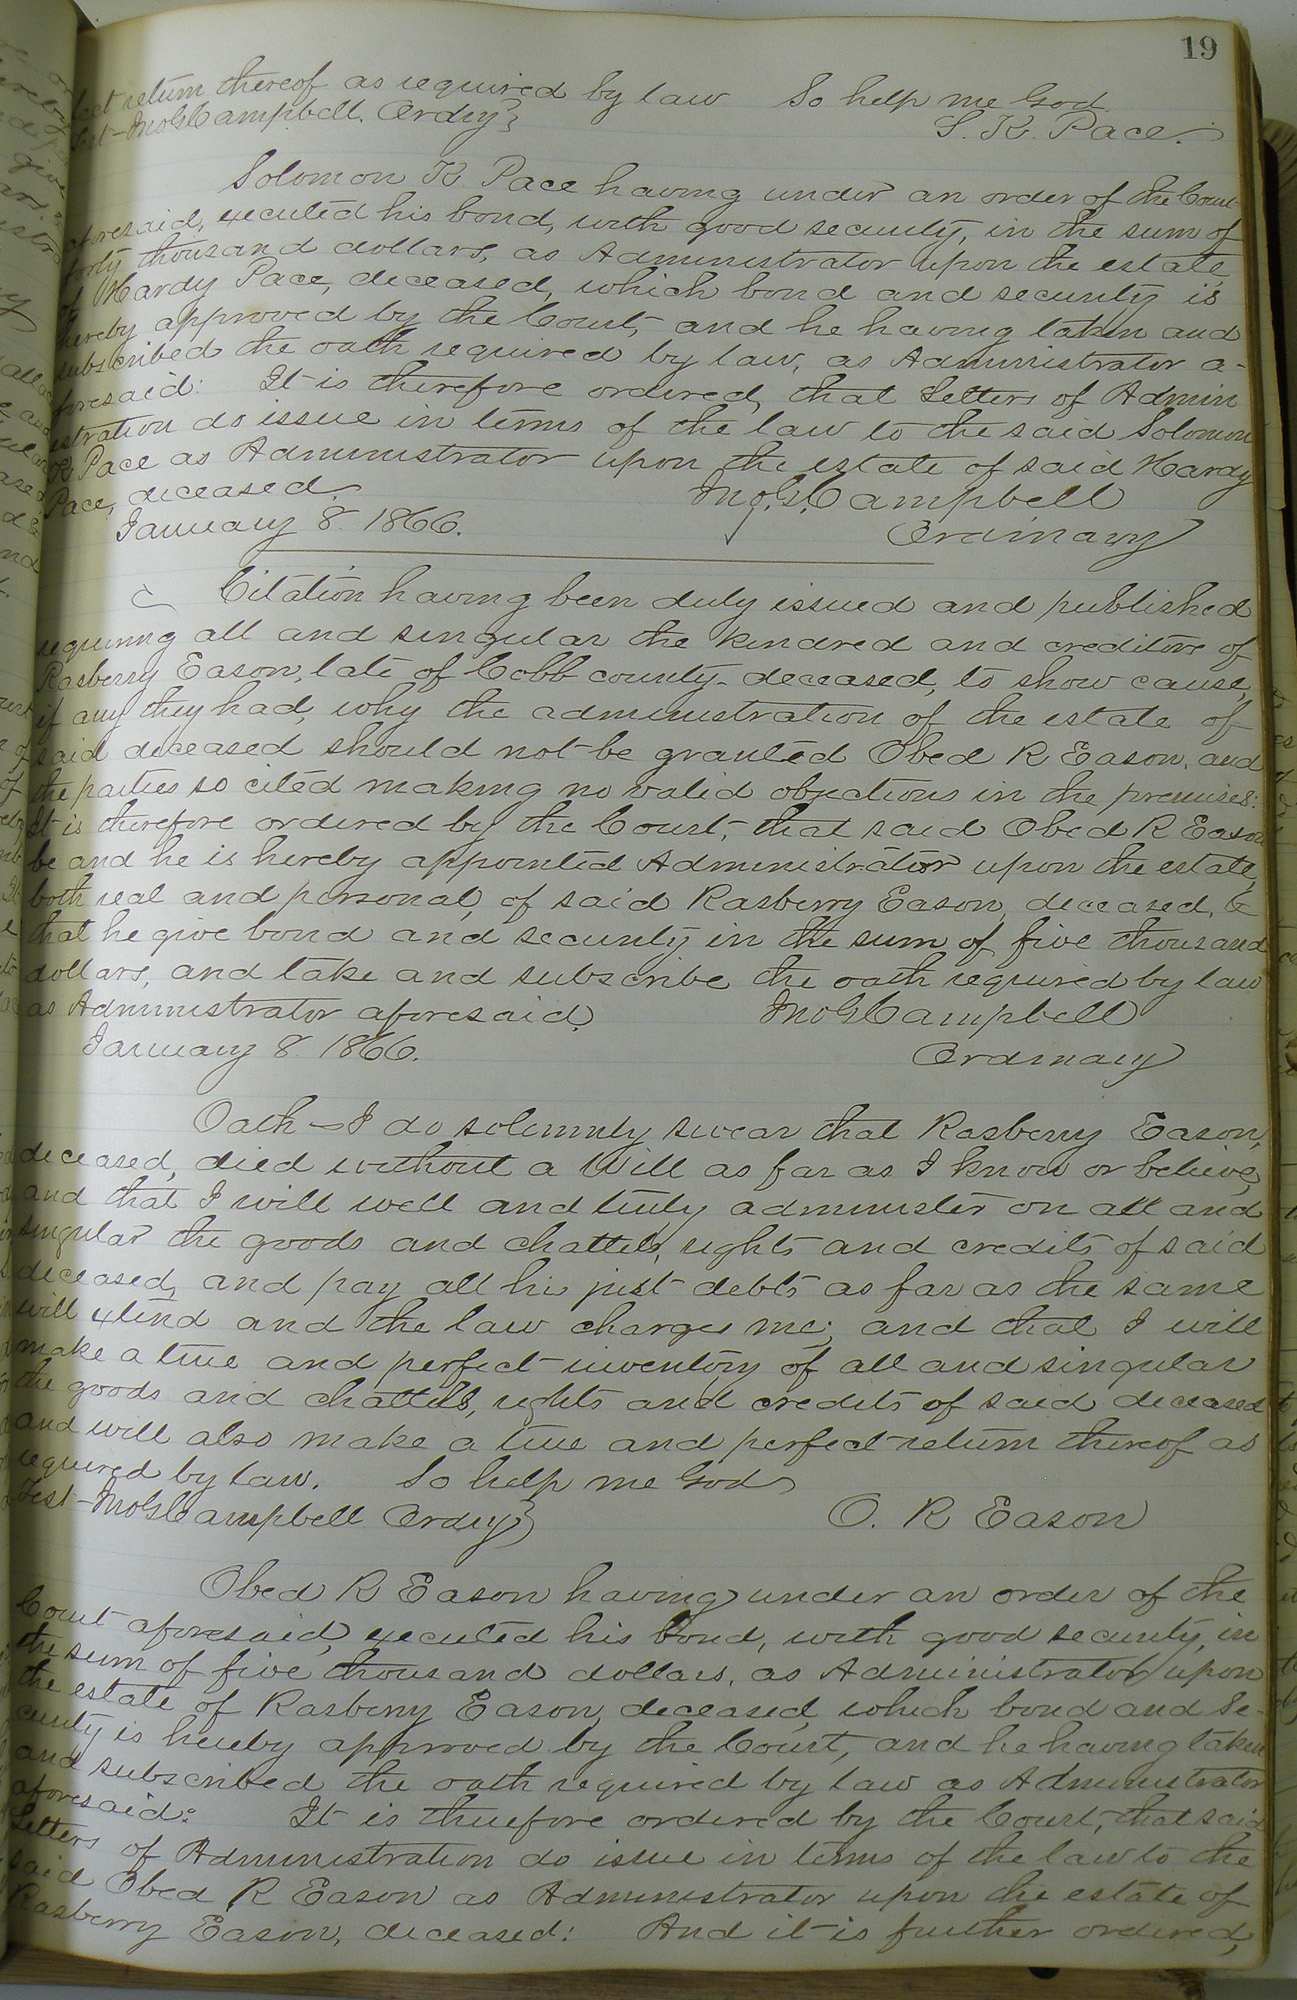 19
fect return thereof as required by law So help me God
Test - Jno G Campbell. Ordry} S. K. Pace.
Solomon K Pace having under an order of the Court
aforesaid, executed his bond, with good security, in the sum of
forty thousand dollars, as Administrator upon the estate
of Hardy Pace, deceased, which bond and security is
hereby approved by the Court, and he having taken and
subscribed the oath required by law, as Administrator a-
foresaid: It is therefore ordered, that Letters of Admin
istration do issue in terms of the law to the said Solomon
K Pace as Administrator upon the estate of said Hardy
Pace, deceased. Jno. G. Campbell
January 8. 1866. Ordinary
Citation having been duly issued and published
requiring all and singular the kindred and creditors of
Rasberry Eason, late of Cobb county - deceased, to show cause,
if any they had, why the administration of the estate of
said deceased should not be granted Obed R Eason, and
the parties so cited making no valid objections in the premises:
It is therefore ordered by the Court, that said Obed R Eason
be and he is hereby appointed Administrator upon the estate,
both real and personal, of said Rasberry Eason, deceased, &
that he give bond and security in the sum of five thousand
dollars, and take and subscribe the oath required by law
as Administrator aforesaid. Jno G Campbell
January 8. 1866. Ordinary
Oath - I do solemnly swear that Rasberry Eason,
deceased, died without a Will as far as I know or believe,
and that I will well and truly administer on all and
singular the goods and chattels, rights and credits of said
deceased, and pay all his just debts as far as the same
will extend and the law charges me; and that I will
make a true and perfect inventory of all and singular
the goods and chattels, rights and credits of said deceased
and will also make a true and perfect return thereof as
required by law. So help me God
Test - Jno G Campbell Ordry} O. R Eason
Obed R Eason having under an order of the
Court aforesaid, executed his bond, with good security, in
the sum of five thousand dollars, as Administrator upon
the estate of Rasberry Eason, deceased, which bond and se-
curity is hereby approved by the Court, and he having taken
and subscribed the oath required by law as Administrator
aforesaid: It is therefore ordered by the Court, that said
Letters of Administration do issue in terms of the law to the
said Obed R Eason as Administrator upon the estate of
Rasberry Eason, deceased: And it is further ordered,